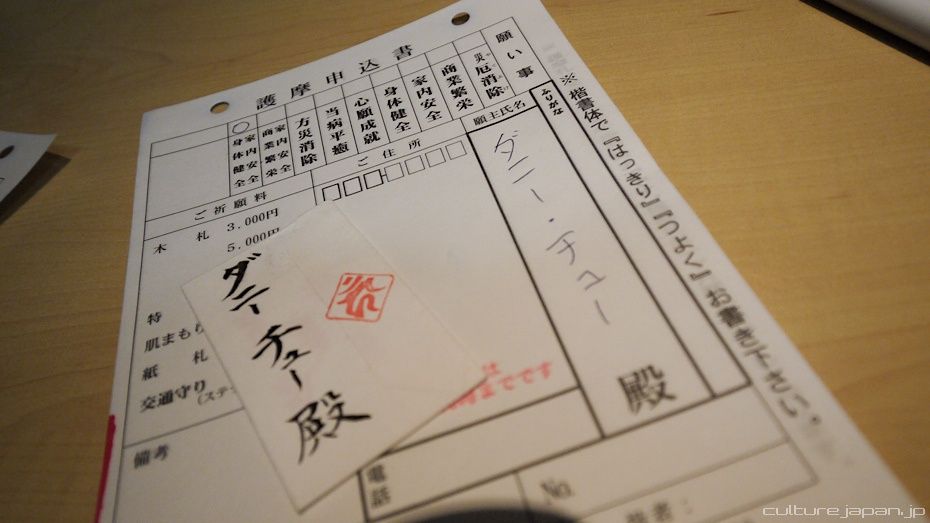 護摩申込書
願い事
災厄消除
商業繁栄
家内安全
身体健全
心願成就
当病平癒
方災消除
家内安全
商業繁栄
家内安全
身体健全
○
ふりがな
願主氏名
ダニー・チュー
殿
ご住所
ご祈願料
木札
3,000円
5,000円
特
肌まもり
紙札
交通守り
(ステ
備考
ダニー
チュー殿
は
までです
電話
No.
※楷書体で『はっきり』『つよく』お書き下さい。
culturejapan.jp